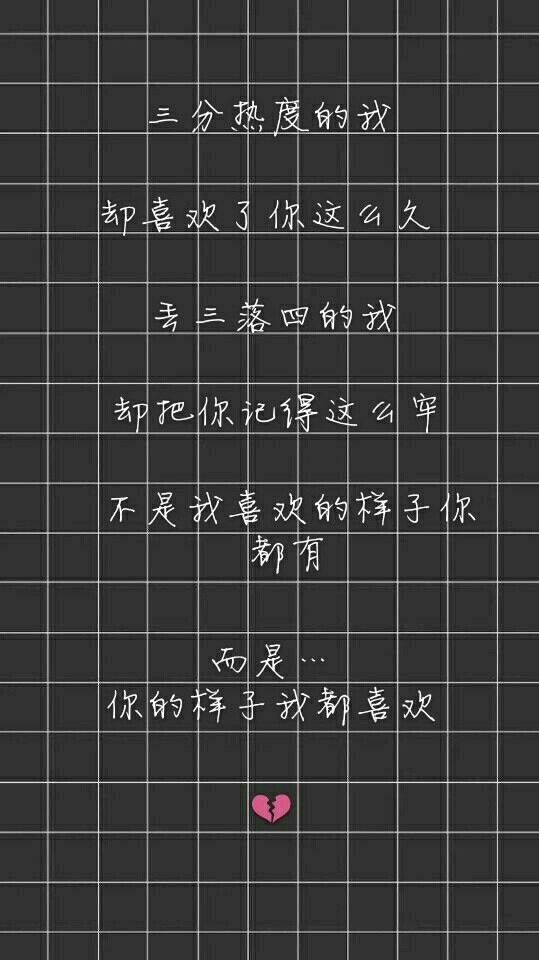 三分热度的我
却喜欢了你这么久
丢三落四的我
却把你记得这么牢
不是我喜欢的样子你
都有
而是…
你的样子我都喜欢